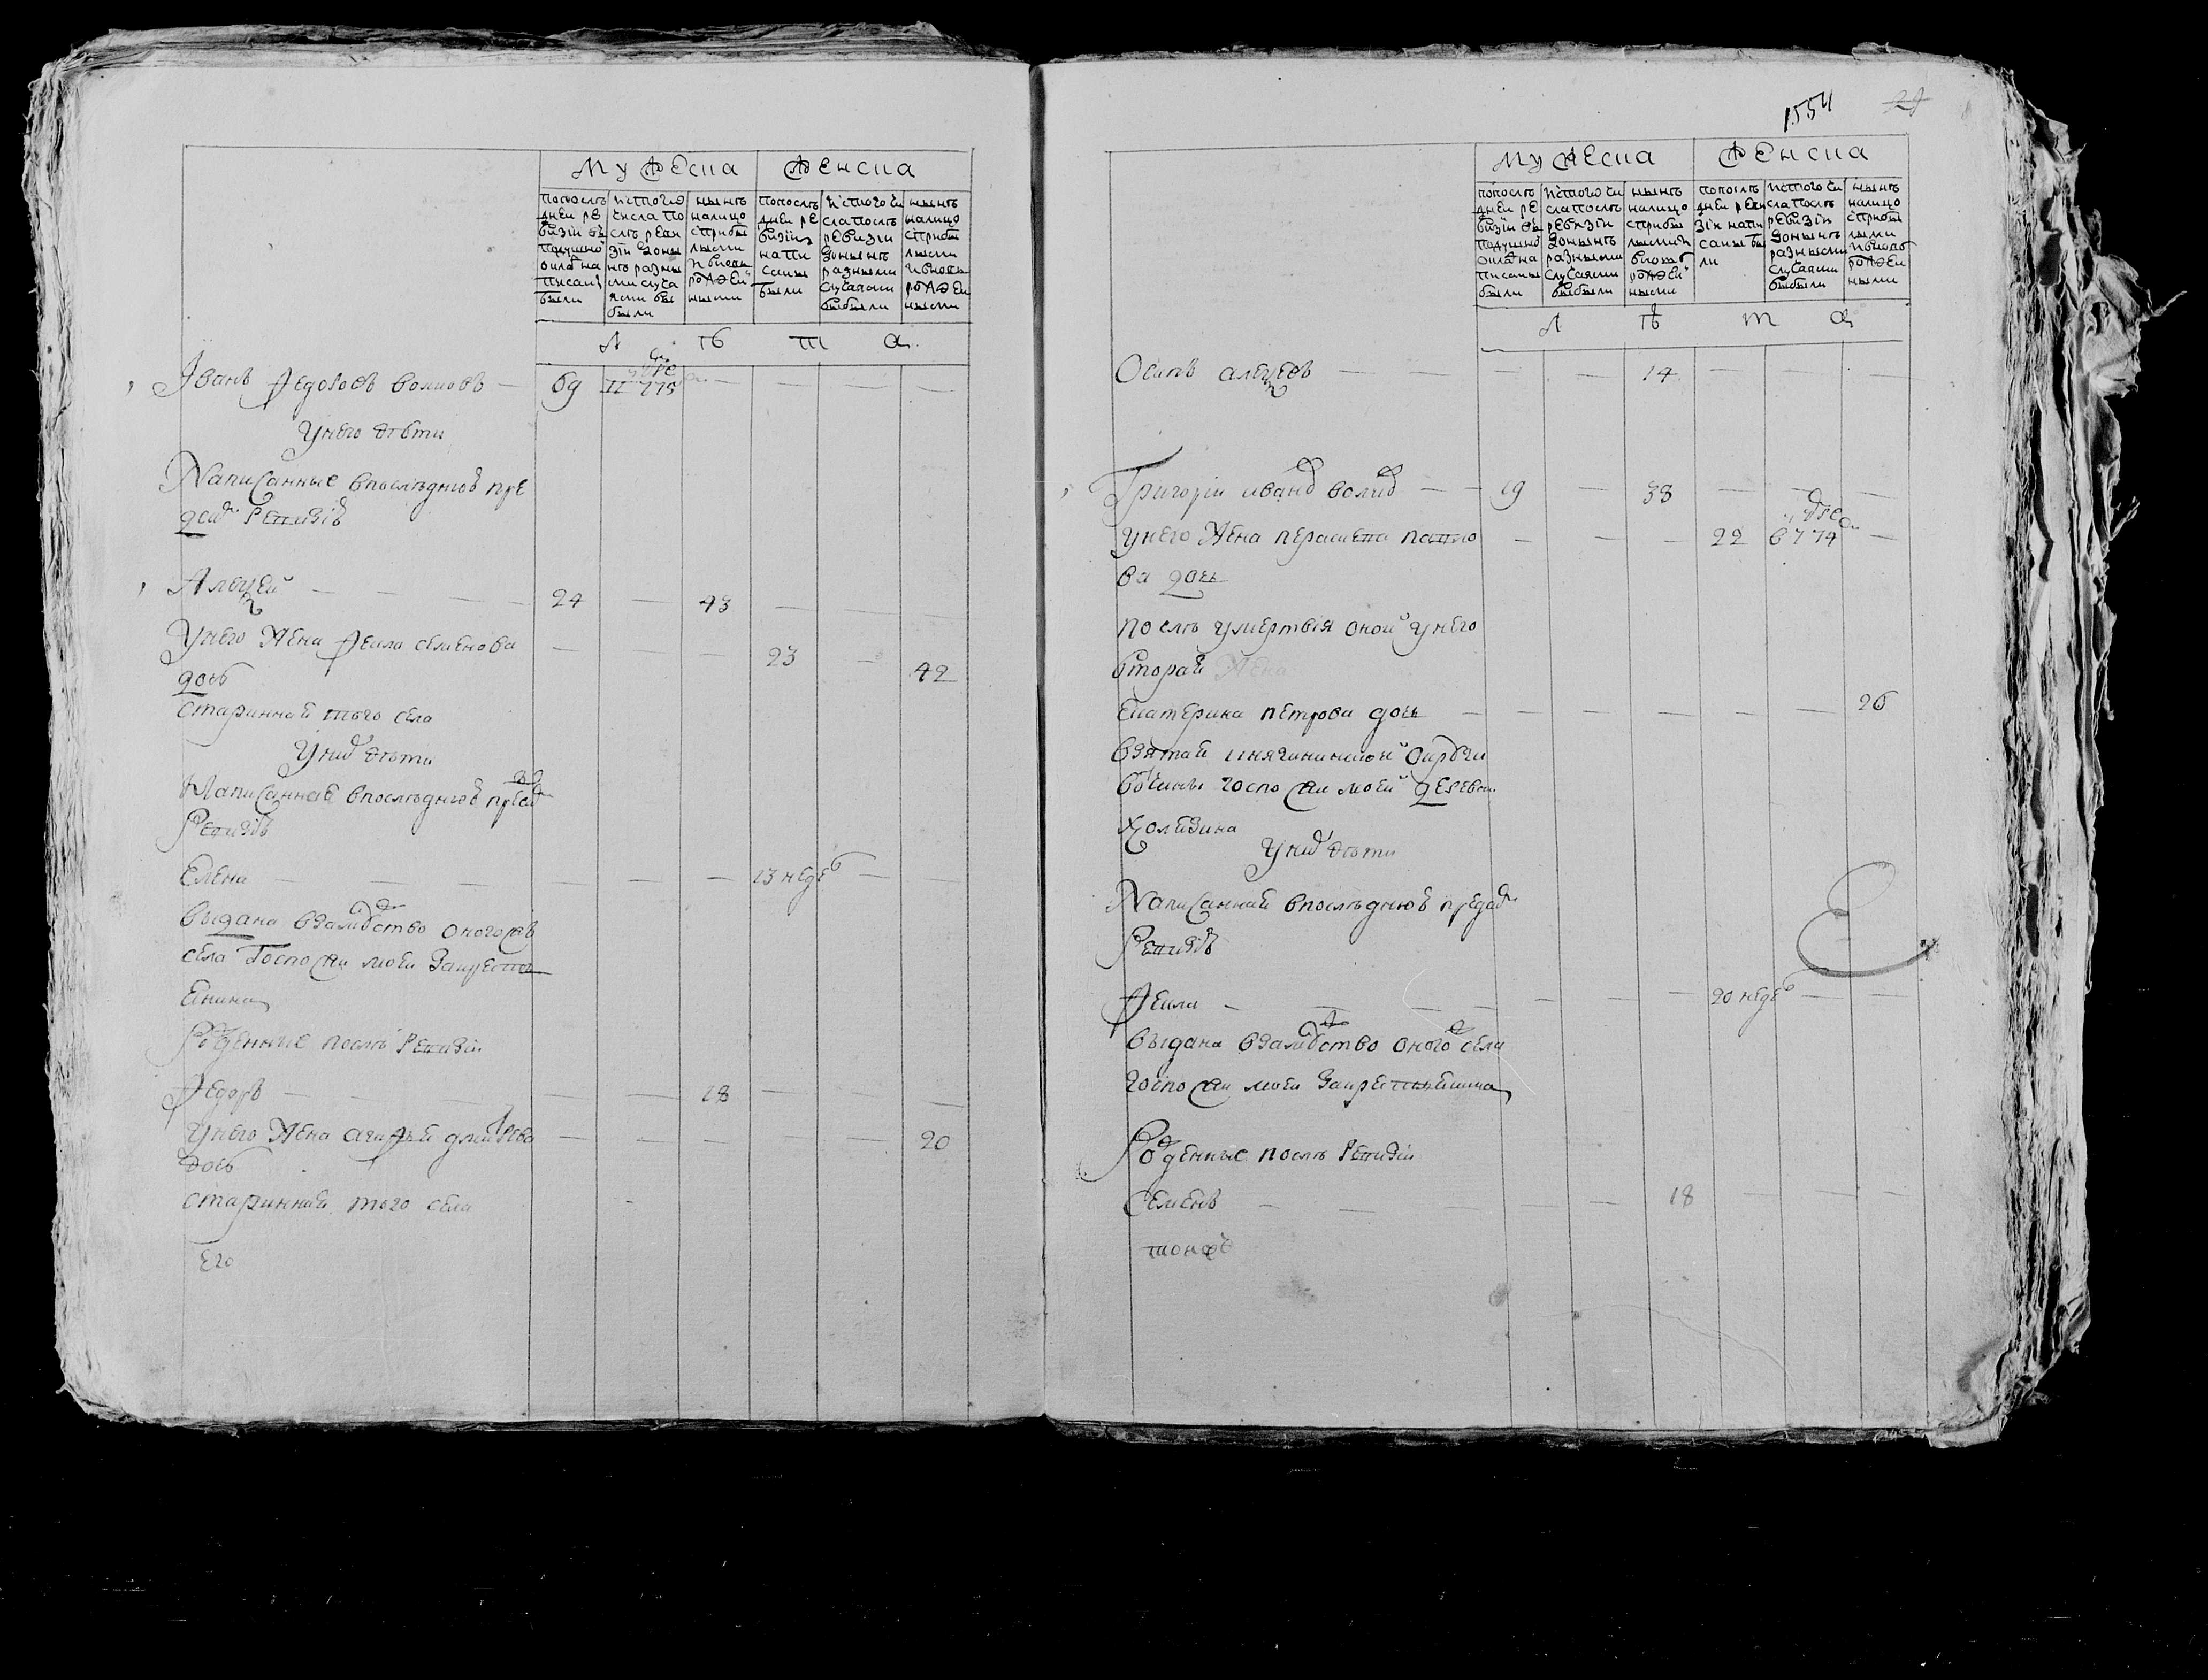 МУЖЕСКА ЖЕНСКА
попослѣ
дней ре
визіи въ
подушно
окладъ на
писаны
были
истого
числа по
слѣ реви
зіи доны
нѣ разны
ми случа
ями вы
были
нынѣ
налицо
с прибы
лыми
и вновь
рожден
ными
попослѣ
дней ре
визіи
напи
саны
были
истого чи
сла послѣ
ревизіи
донынѣ
разными
случаями
выбыли
нынѣ
налицо
с прибы
лыми
и вновь
рожден
ными
Л Ѣ Т А
Іванъ Федоровъ волковъ 69 в 775
Унего дѣти
Написанные впослѣднюю пре
дсю ревизію
Алеѯей 24 43
Унего жена Фекла семенова 23 42
дочь
старинная того села
Уних дѣти
Написанная впослѣднюю пред
Ревизію
Елена 13 недѣ
выдана взамужство оного ж
села Госпожи моей за крестья
нина
Рожденные послѣ Ревизіи
Федоръ 18
Унего жена агафья дмитрева 20
дочь
старинная того села
его
1554
МУЖЕСКА ЖЕНСКА
попослѣ
дней ре
визіи въ
подушно
окладъ на
писаны
были
истого чи
сла послѣ
ревизіи
донынѣ
разными
случаями
выбыли
нынѣ
налицо
с прибы
лыми и
вновь
рожден
ными
попослѣ
дней реви
зіи напи
саны бы
ли
истого чи
сла послѣ
ревизіи
донынѣ
разными
случаями
выбыли
нынѣ
налицо
с прибы
лыми
и вновь
рожден
ными
Л Ѣ Т А
Осипъ алеѯеевъ 14
Григорій иванов волков 19 38
унего жена парасковья павло 22 в 774
ва дочь
послѣ умертвія оной унего
вторая жена
Екатерина петрова дочь 26
взятая княгининской округи
вотчины госпожи моей деревни
Уних дѣти
Написанная впослѣднюю пред
Ревизію
Фекла 20 недѣ
выдана взамужство оного ж села
госпожи моей за крестьянина
Рожденные послѣ Ревизіи
Семенъ 18